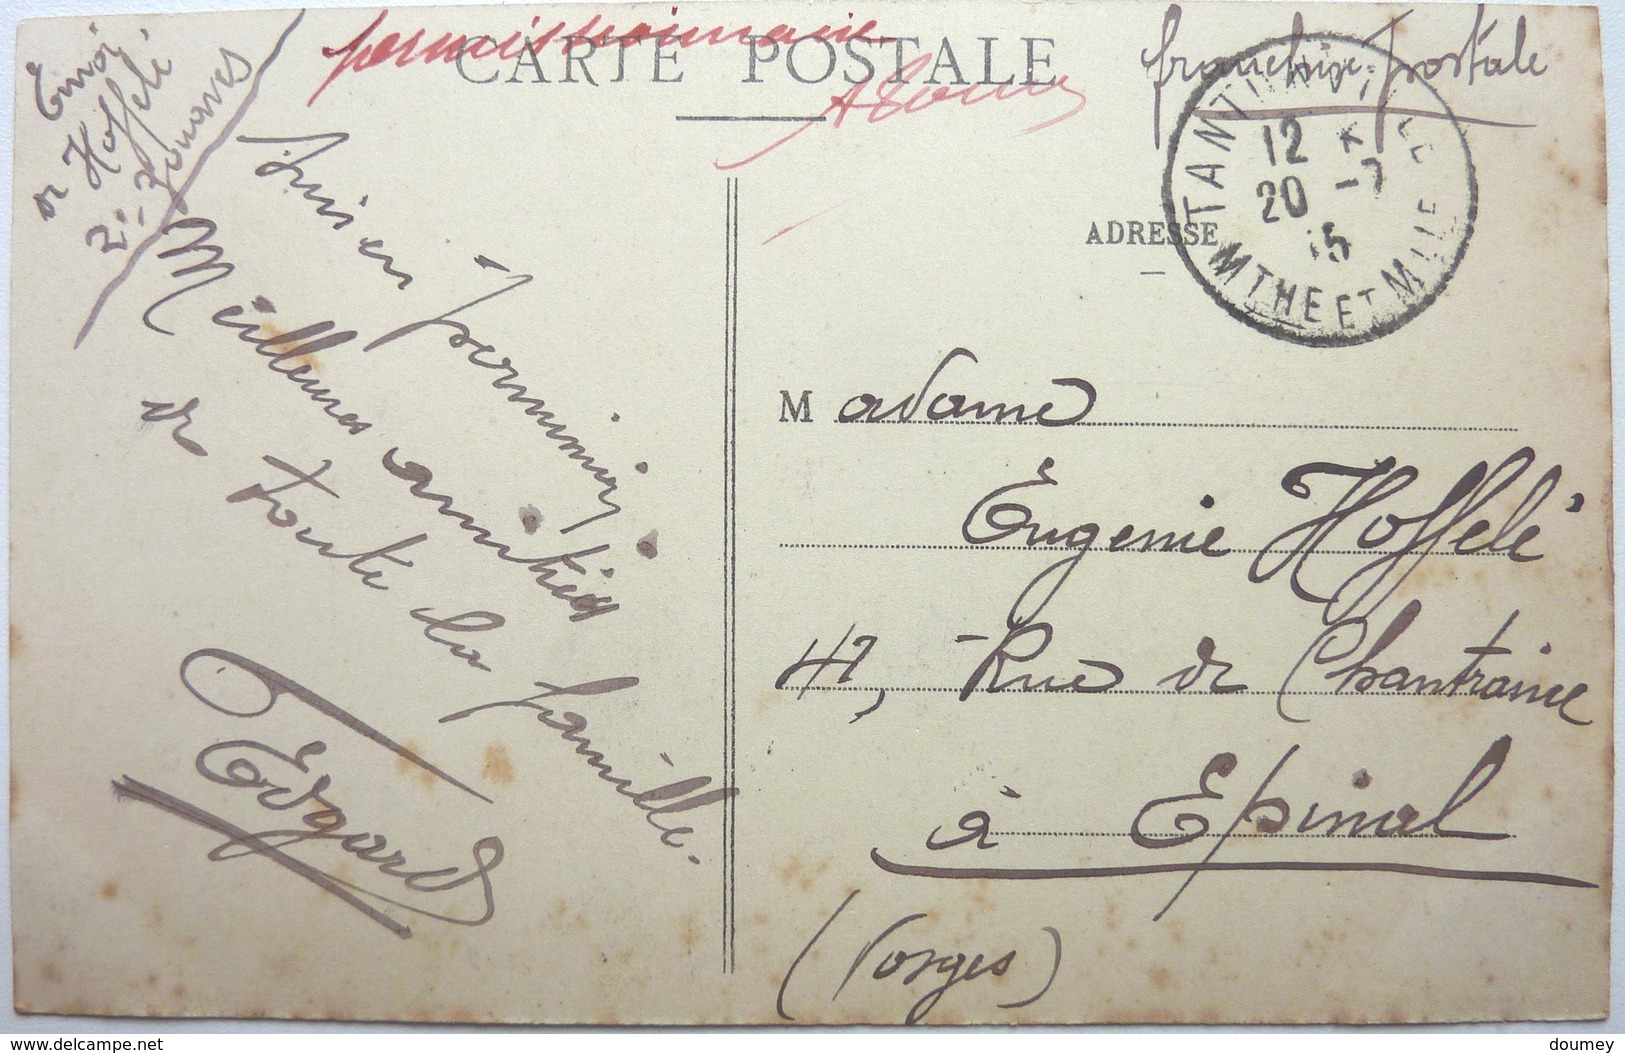 Envoi
de Hoffelé
2e Zouaves
permissionnaire
CARTE POSTALE
franchise postale
TANTONVILLE
12 *
20 -7
15
MTHE ET MLLE
ADRESSE
Suis en permission.
Meilleures amitiés
de toute la famille.
Edgard
M adame
Eugenie Hoffelé
47, Rue de Chantraine
à Epinal
(Vosges)
delcampe.net
doumey